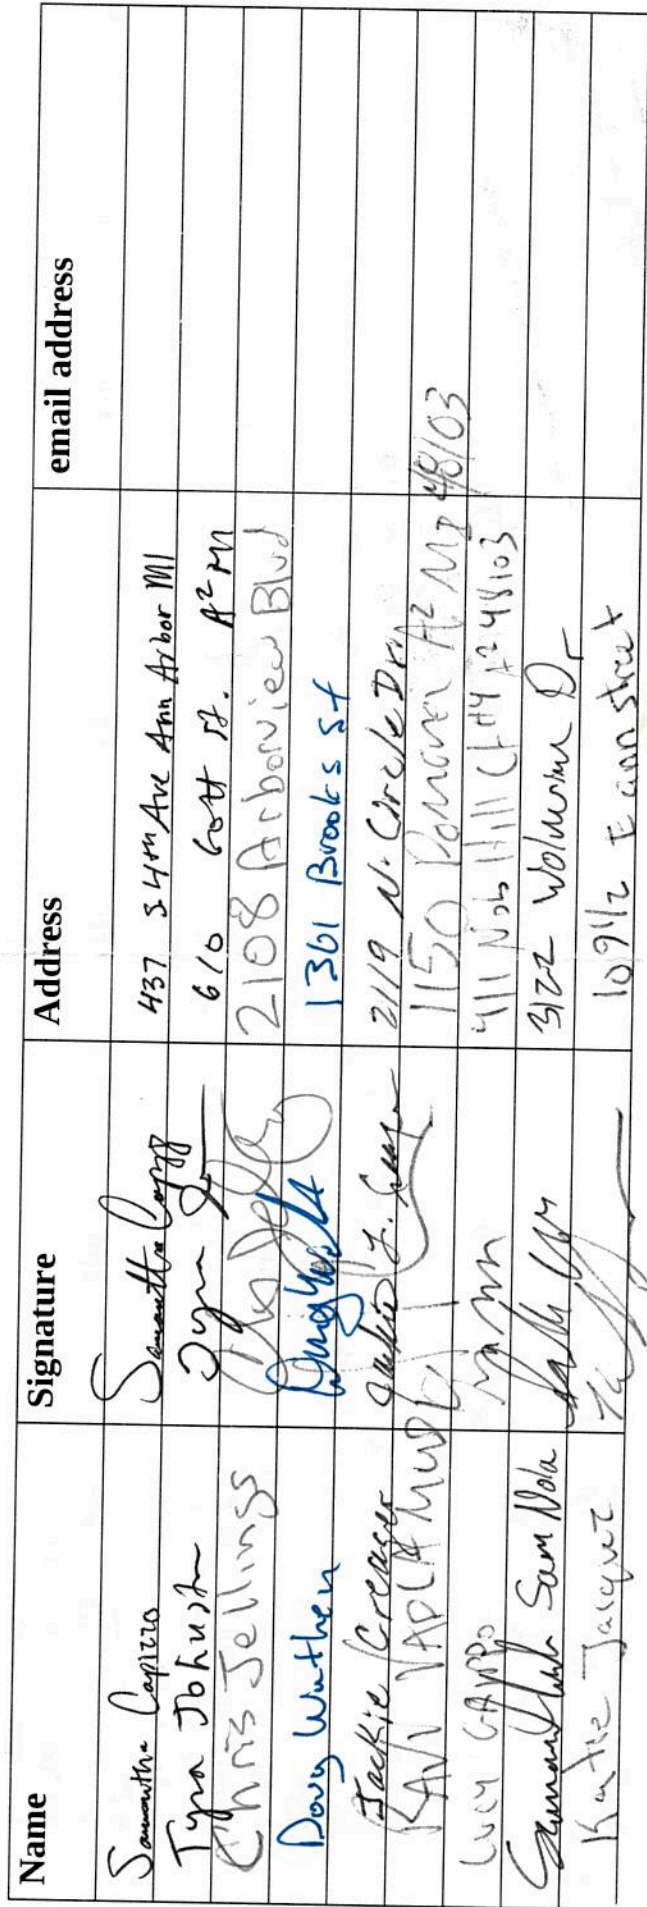 Name Signature Address email address
Samantha Capizzo Samantha Capizzo 437 S 4th Ave Ann Arbor MI
Tyra Johnston Tyra 610 Gott St. A² MI
Chris Jellings 2108 Arborview Blvd
Doug Wathen 1301 Brooks St
Jackie Creager Jackie L. Creager 2119 N. Circle Dr.
RAVI VADLAMUDI 1150 Pomona A² MI 48103
Lucy 411 Nob Hill Ct #4 A2 48103
Sam Nola 3122 Wolverine Dr
Katie Jacquez 109 1/2 E ann street